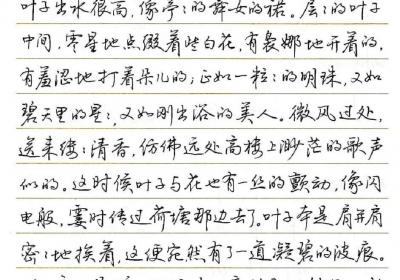 叶子出水很高，像亭：的舞女的裙。层：的叶子
中间，零星地点缀着些白花，有袅娜地开着的，
有羞涩地打着朵儿的；正如一粒：的明珠，又如
碧天里的星：，又如刚出浴的美人。微风过处，
送来缕：清香，仿佛远处高楼上渺茫的歌声
似的。这时候叶子与花也有一丝的颤动，像闪
电般，霎时传过荷塘那边去了。叶子本是肩并肩
密：地挨着，这便宛然有了一道凝碧的波痕。